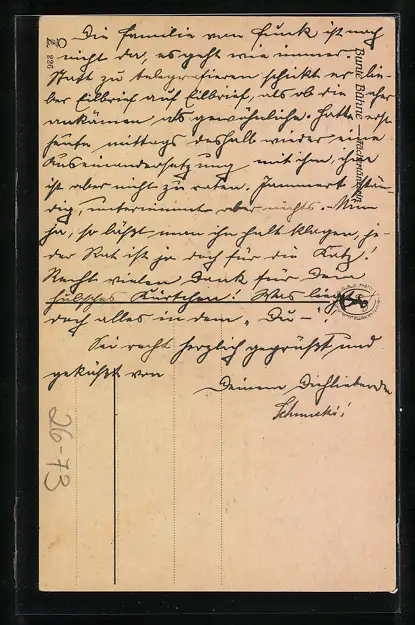 Die Familie von Funk ist noch
nicht da, es geht wie immer.
Statt zu telegrafieren schickt er lie-
ber Eilbrief auf Eilbrief, als ob die eher
ankämen, als gewöhnliche. Hatte erst
heute mittags deshalb wieder eine
Auseinandersetzung mit ihm, ihm
ist aber nicht zu raten. Jammert stän-
dig, unternimmt aber nichts. Nun
ja, so läßt man ihn halt klagen, je-
der Rat ist ja doch für die Katz!
Recht vielen Dank für Dein
hübsches Kärtchen! Was liegt
doch alles in dem „Du –"!
Sei recht herzlich gegrüßt und
geküßt von
Deinem Dichliebenden
Schnucki!
Bunte Bühne
236
26-73